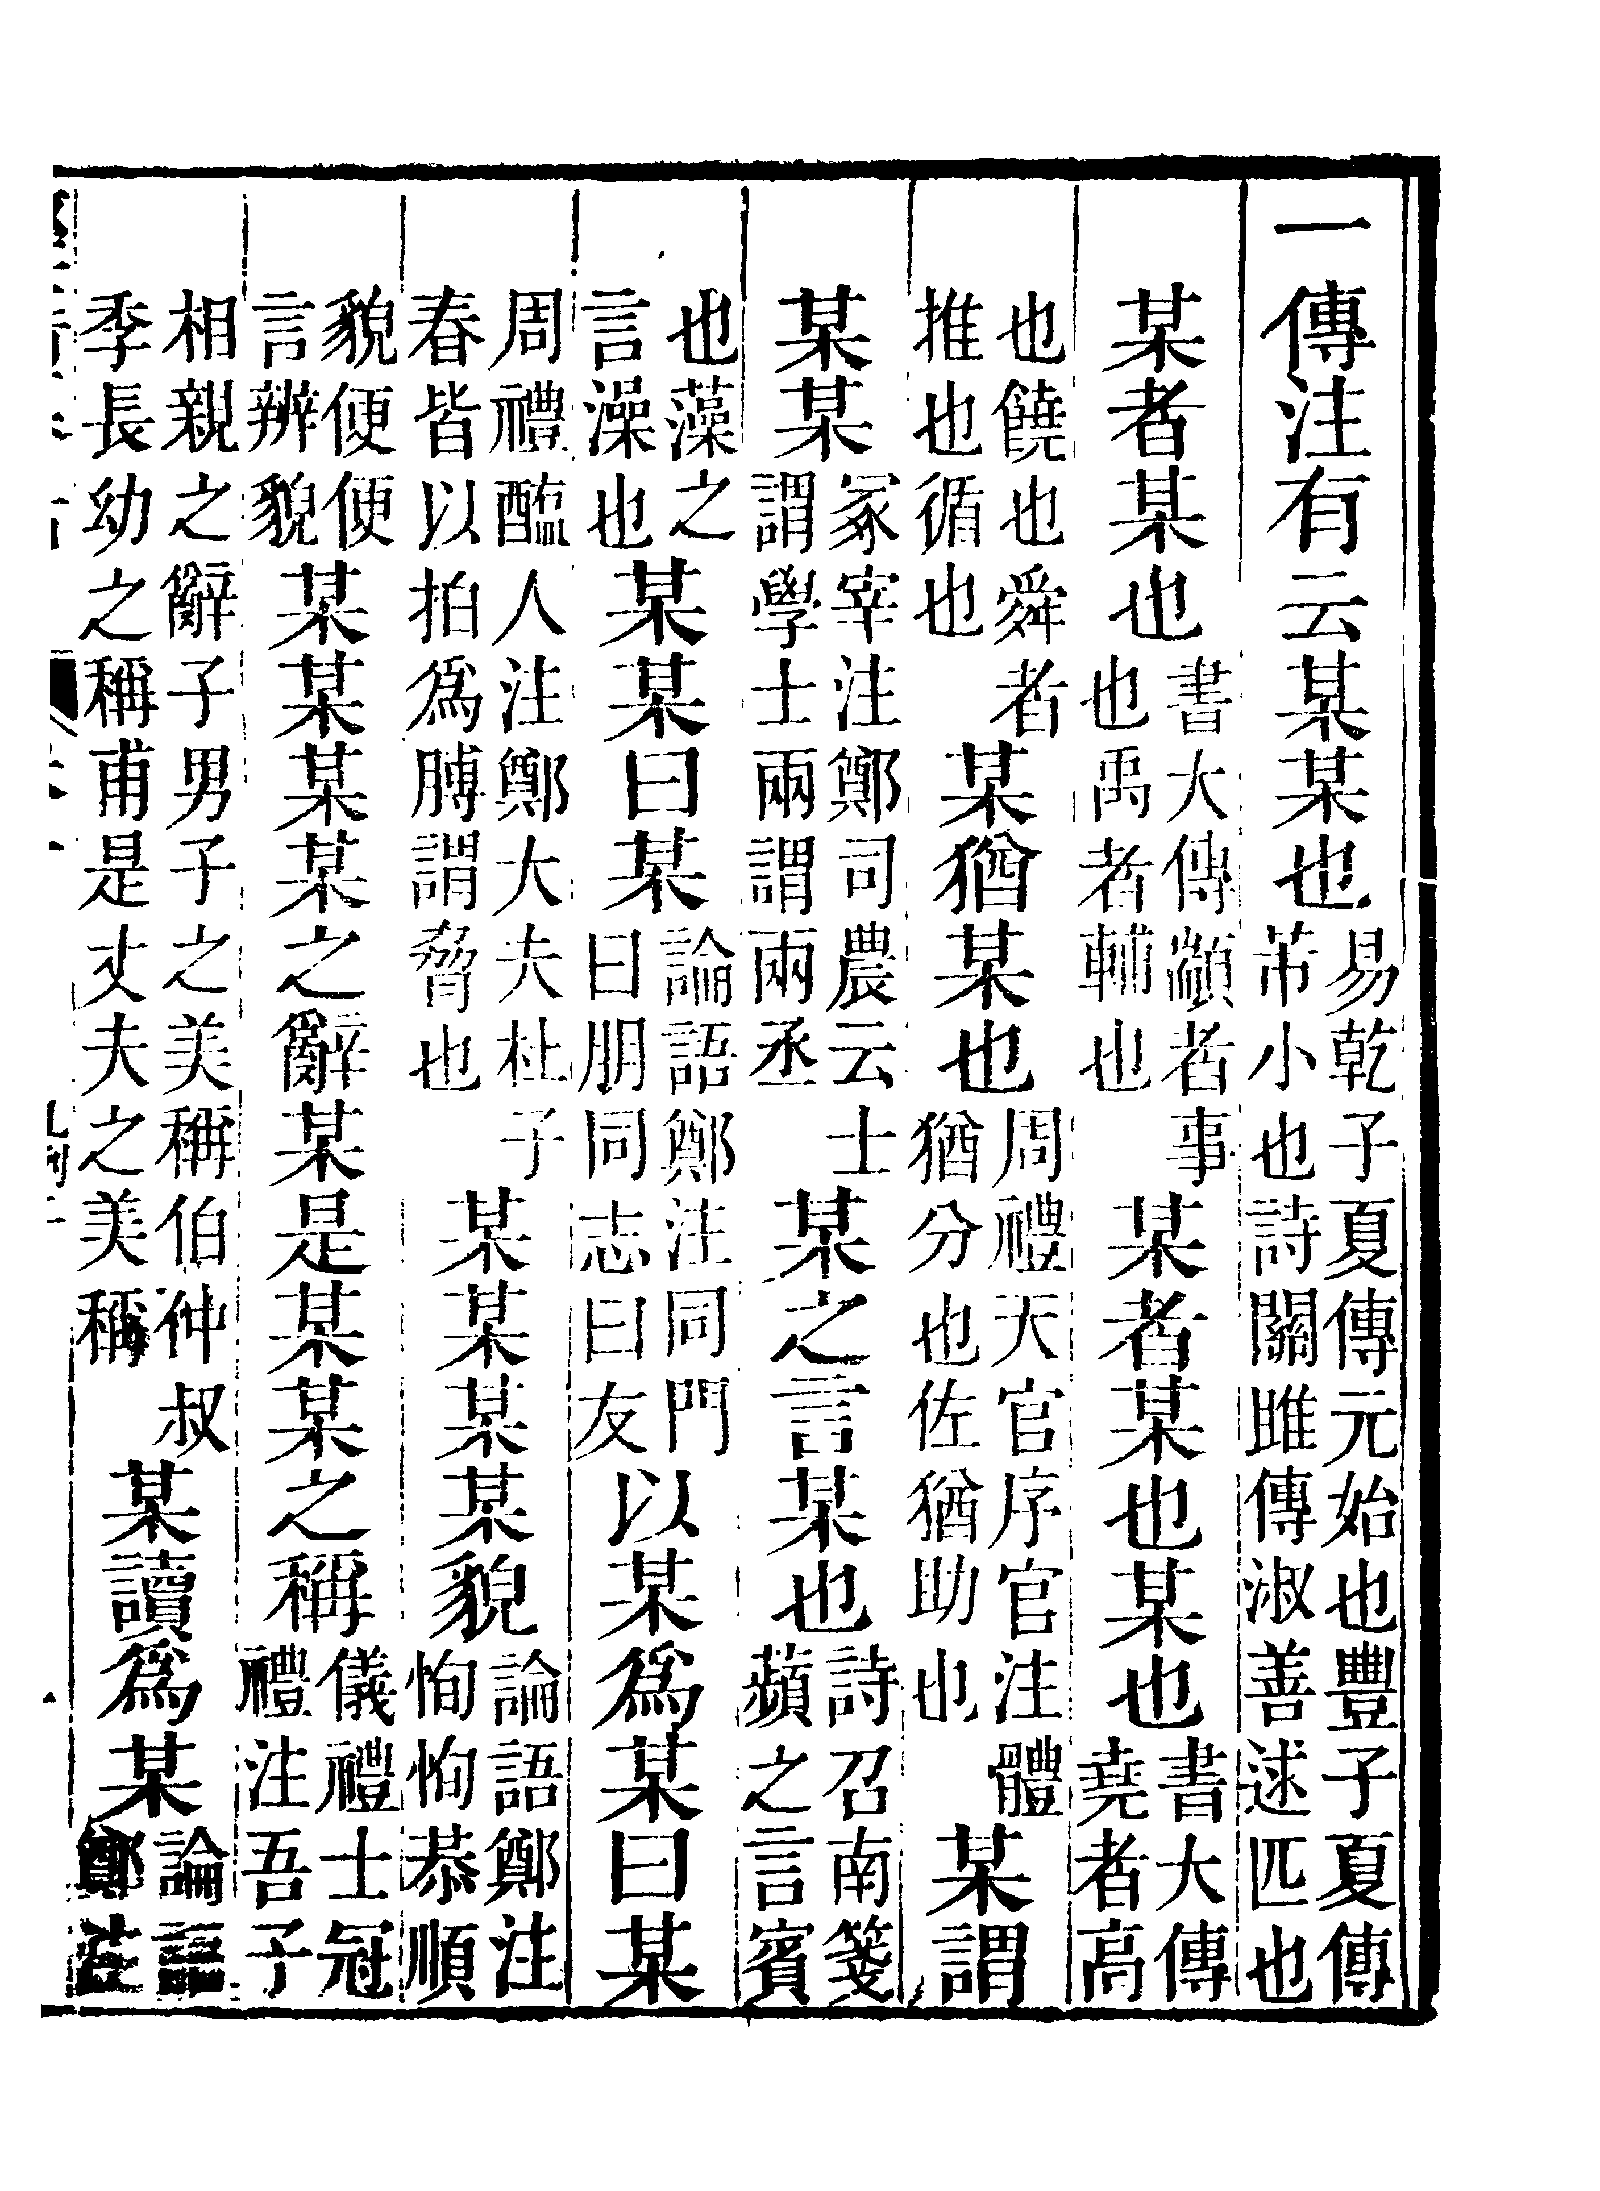 一傳注有云某某也易乾子夏傳元始也豐子夏傳芾小也詩關雎傳淑善逑匹也
某者某也書大傳顓者事也禹者輔也某者某也某也書大傳堯者高
也饒也舜者推也循也某猶某也周禮天官序官注體猶分也佐猶助也某謂
某某冢宰注鄭司農云士謂學士兩謂兩丞某之言某也詩召南箋蘋之言賓
也藻之言澡也某某曰某論語鄭注同門曰朋同志曰友以某爲某曰某
周禮醢人注鄭大夫杜子春皆以拍爲膊謂脅也某某某某貌論語鄭注恂恂恭順
貌便便言辨貌某某某某之辭某是某某之稱儀禮士冠禮注吾子
相親之辭子男子之美稱伯仲叔季長幼之稱甫是丈夫之美稱某讀爲某論語鄭注